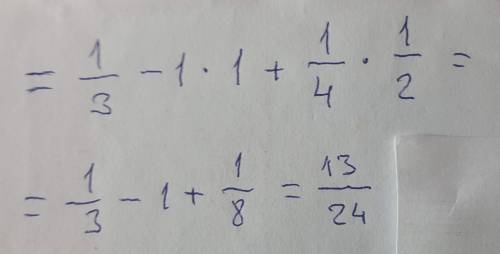 = 1/3 - 1 · 1 + 1/4 · 1/2 =
= 1/3 - 1 + 1/8 = 13/24